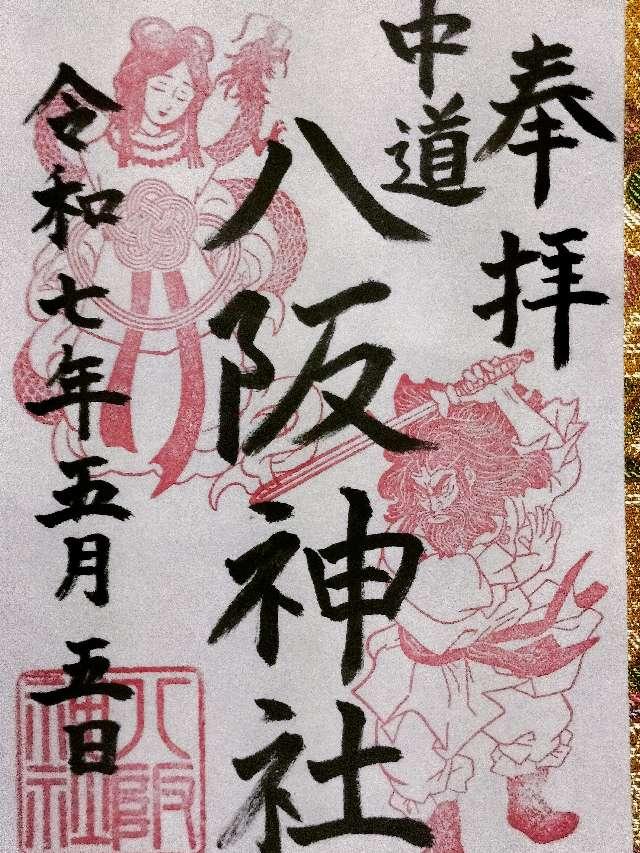 奉拝
中道
八阪神社
令和七年五月五日
八阪神社